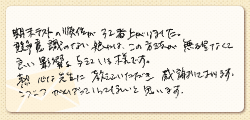 期末テストの順位が32番上がりました。
競争意識のない娘には、この方法が無理なくて
良い影響を与えている様です。
熱心な先生に教えていただき感謝しております。
コツコツがんばっていってほしいと思います。